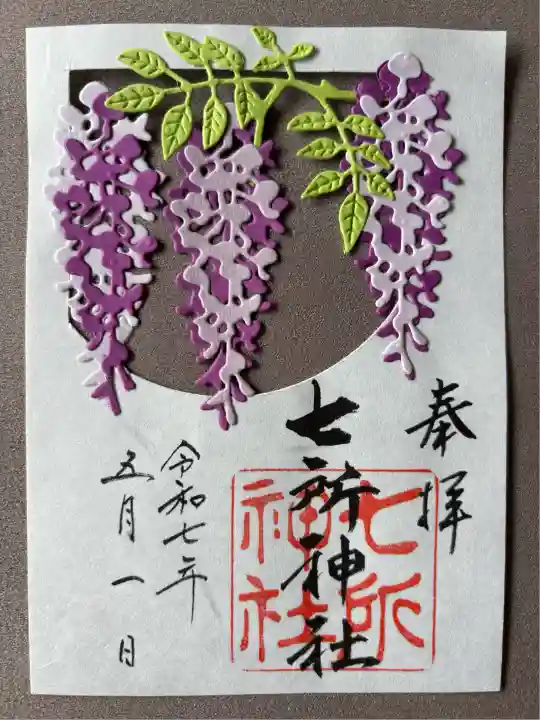 奉拝
七所神社
七所
神社
令和七年
五月一日